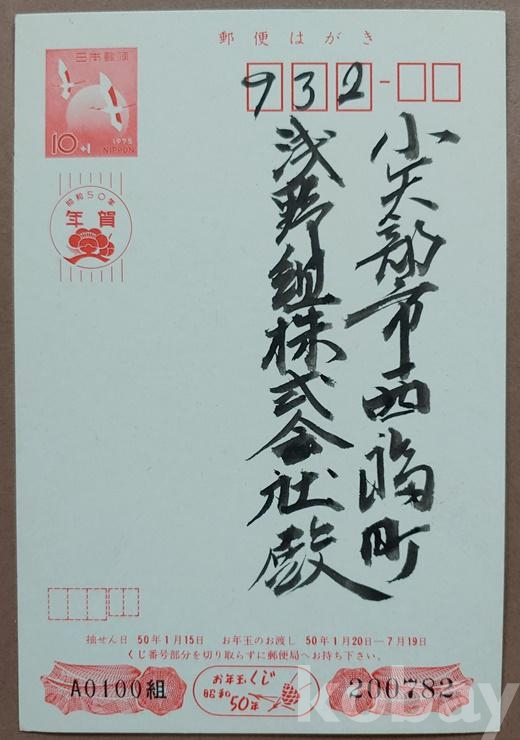 郵便はがき
日本郵便
10+1
1975
NIPPON
昭和50年
年賀
932
小矢部市西福町
浅野組株式会社殿
抽せん日 50年1月15日 お年玉のお渡し 50年1月20日―7月19日
くじ番号部分を切り取らずに郵便局へお持ち下さい。
A0100組
お年玉くじ
昭和
50年
200782
kobay